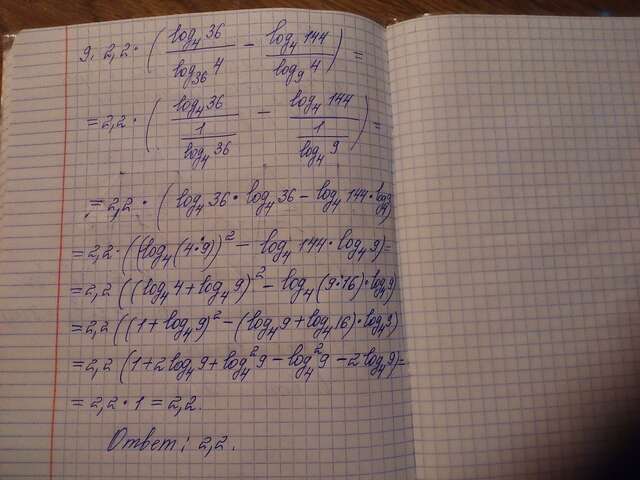 9. 2,2 · ( log₄36 / log₃₆4 − log₄144 / log₉4 ) =
= 2,2 · ( log₄36 / (1 / log₄36) − log₄144 / (1 / log₄9) ) =
= 2,2 · ( log₄36 · log₄36 − log₄144 · log₄9)
= 2,2 · ((log₄(4·9))² − log₄144 · log₄9) =
= 2,2 ((log₄4 + log₄9)² − log₄(9·16) · log₄9)
= 2,2 ((1 + log₄9)² − (log₄9 + log₄16) · log₄9)
= 2,2 (1 + 2log₄9 + log₄²9 − log₄²9 − 2log₄9) =
= 2,2 · 1 = 2,2.
Ответ: 2,2.